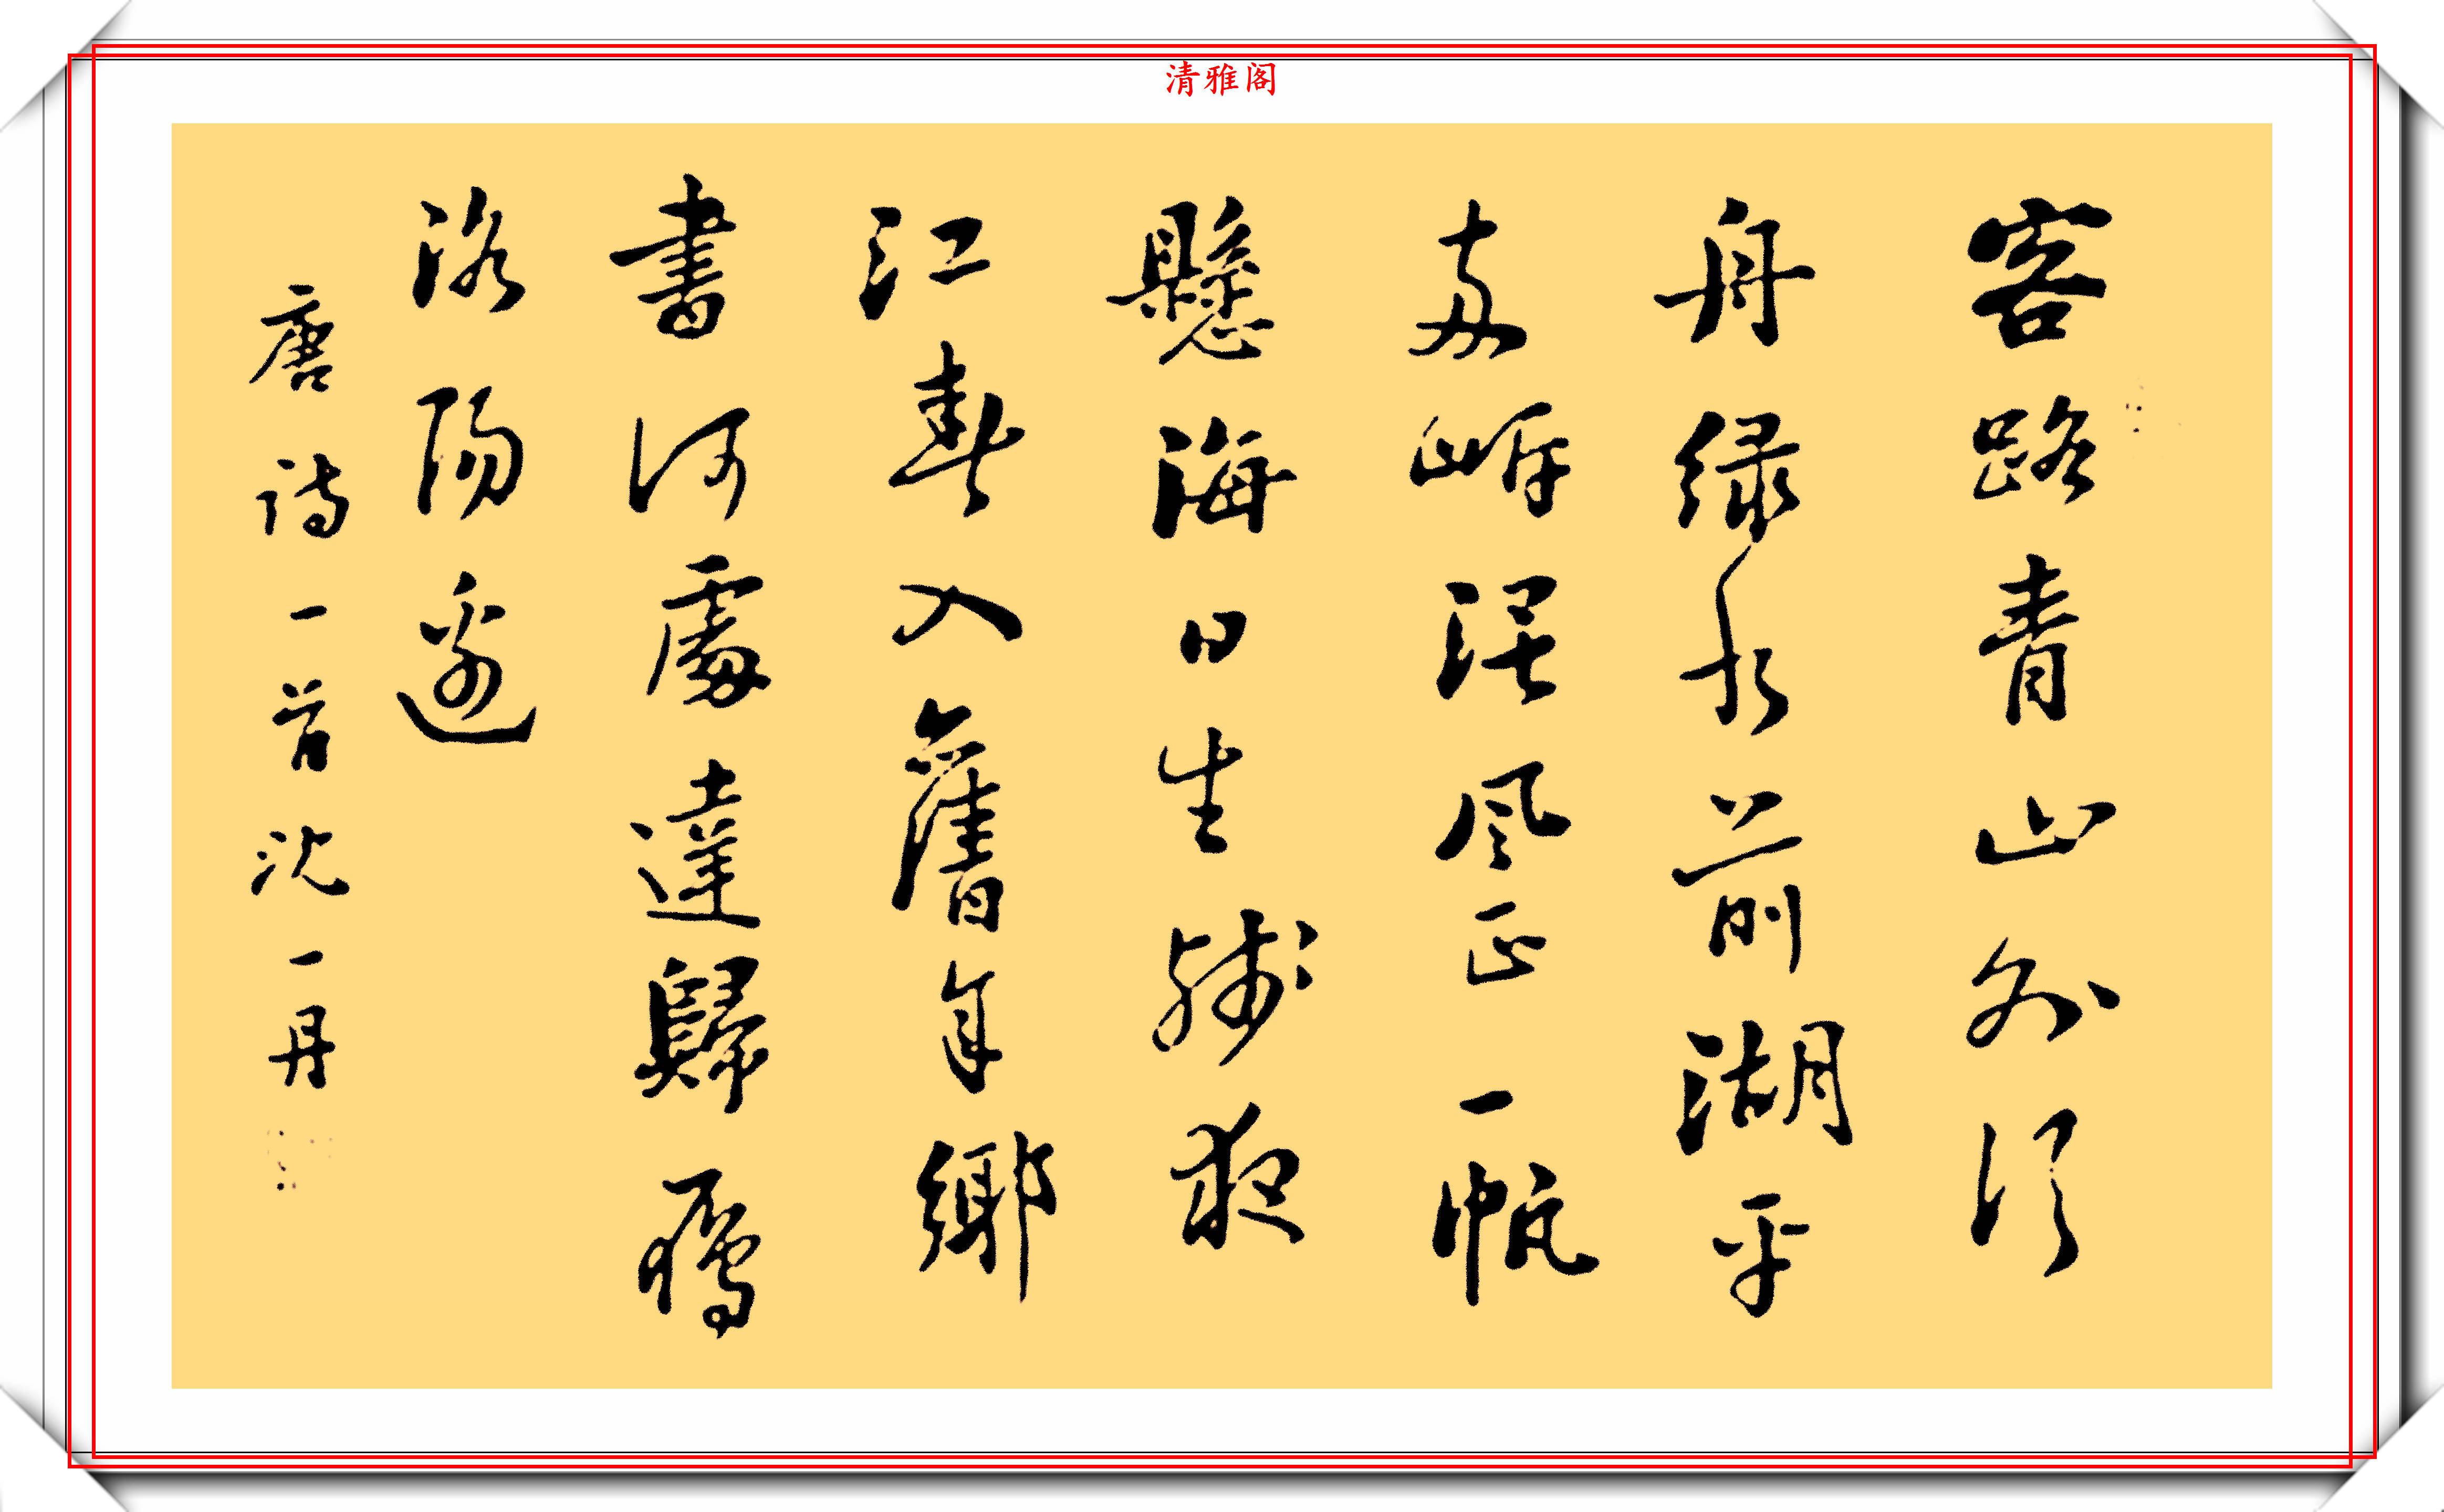 清雅阁
客路青山外行
舟绿水前潮平
两岸阔风正一帆
懸海日生残夜
江春入舊年鄉
書何處達歸鴈
洛陽邊
唐诗一首沈一丹